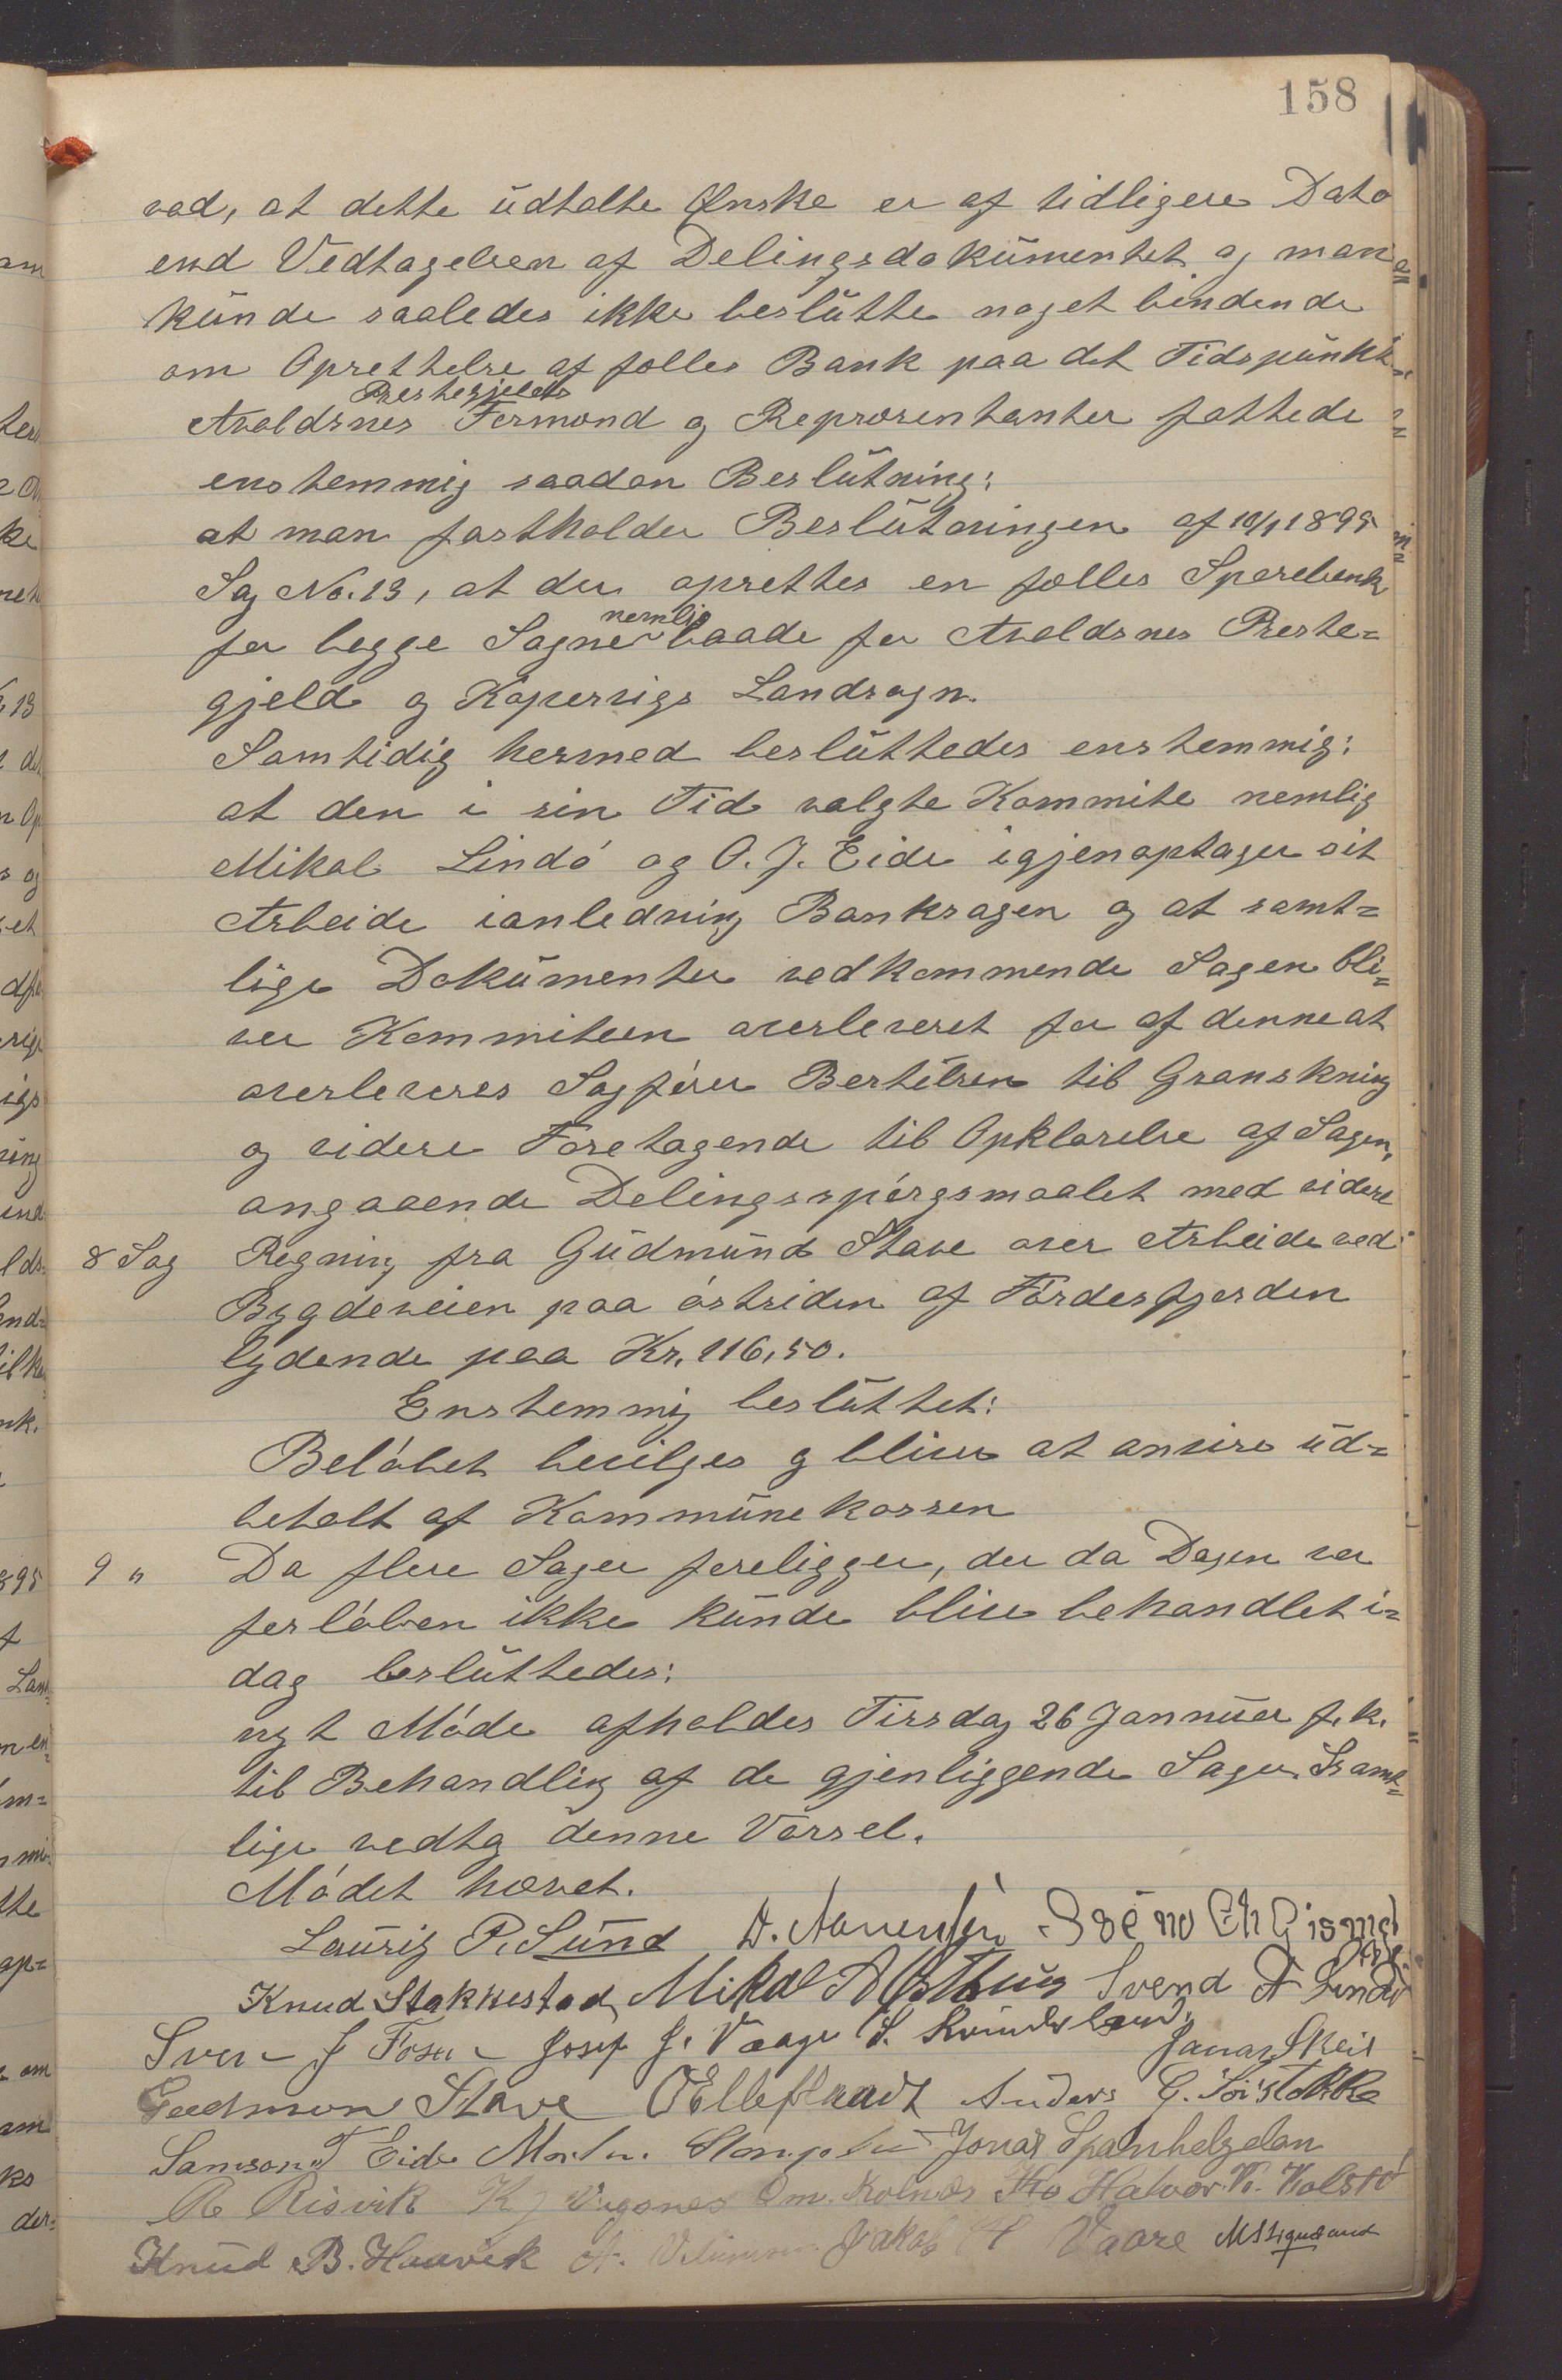 158
ved, at dette udtalte Ønske er af tidligere Dato
end Vedtagelsen af Delingsdokumentet og man
kunde saaledes ikke beslutte noget bindende
om Oprettelse af fælles Bank paa det Tidspunkt
Prestegjelds
Avaldsnes Formænd og Repræsentanter fattede
enstemmig saadan Beslutning:
at man fastholder Beslutningen af 10/1 1895
Sag No. 13, at der oprettes en fælles Sparebank
nemlig
for begge Sogne baade for Avaldsnes Preste=
gjeld og Kopervigs Landsogn.
Samtidig hermed besluttedes enstemmig:
at den i sin Tid valgte Kommite nemlig
Mikal Lindö og O. J. Eide igjenoptager sit
Arbeide ianledning Banksagen og at samt=
lige Dokumenter vedkommende Sagen bli=
ver Kommiteen overleveret for af denne at
overleveres Sagfører Bertelsen til Granskning
og videre Foretagende til Opklarelse af Sagen,
angaaende Delingsspörgsmaalet med videre
8 Sag Regning fra Gudmund Stave over Arbeide ved
Bygdeveien paa östsiden af Fördesfjorden
lydende paa Kr. 116,50.
Enstemmig besluttet:
Belöbet bevilges og bliver at anvise ud=
betalt af Kommunekassen
9 " Da flere Sager foreligger, der da Dagen var
forlöben ikke kunde blive behandlet i=
dag besluttedes:
nyt Möde afholdes Tirsdag 26 Jannuar f. k.
til Behandling af de gjenliggende Sager. Samt=
lige vedtog denne Varsel.
Mödet hævet.
Lauritz P. Lund
Knud Stakkestad Mikal A Østhus Svend A Lindø
Sven J Fosen Josef J. Vaage S. Kvinnesland Jonas Skeie
Gudmun Stave O Elleflaadt Anders G. Sörstokke
Samson T Eide Jonas Spanhelgelan
Risvik K J Vigsnes Om. Kolnes Halvor. Kolstö
Knud B. Haavik Jakob H Vaare